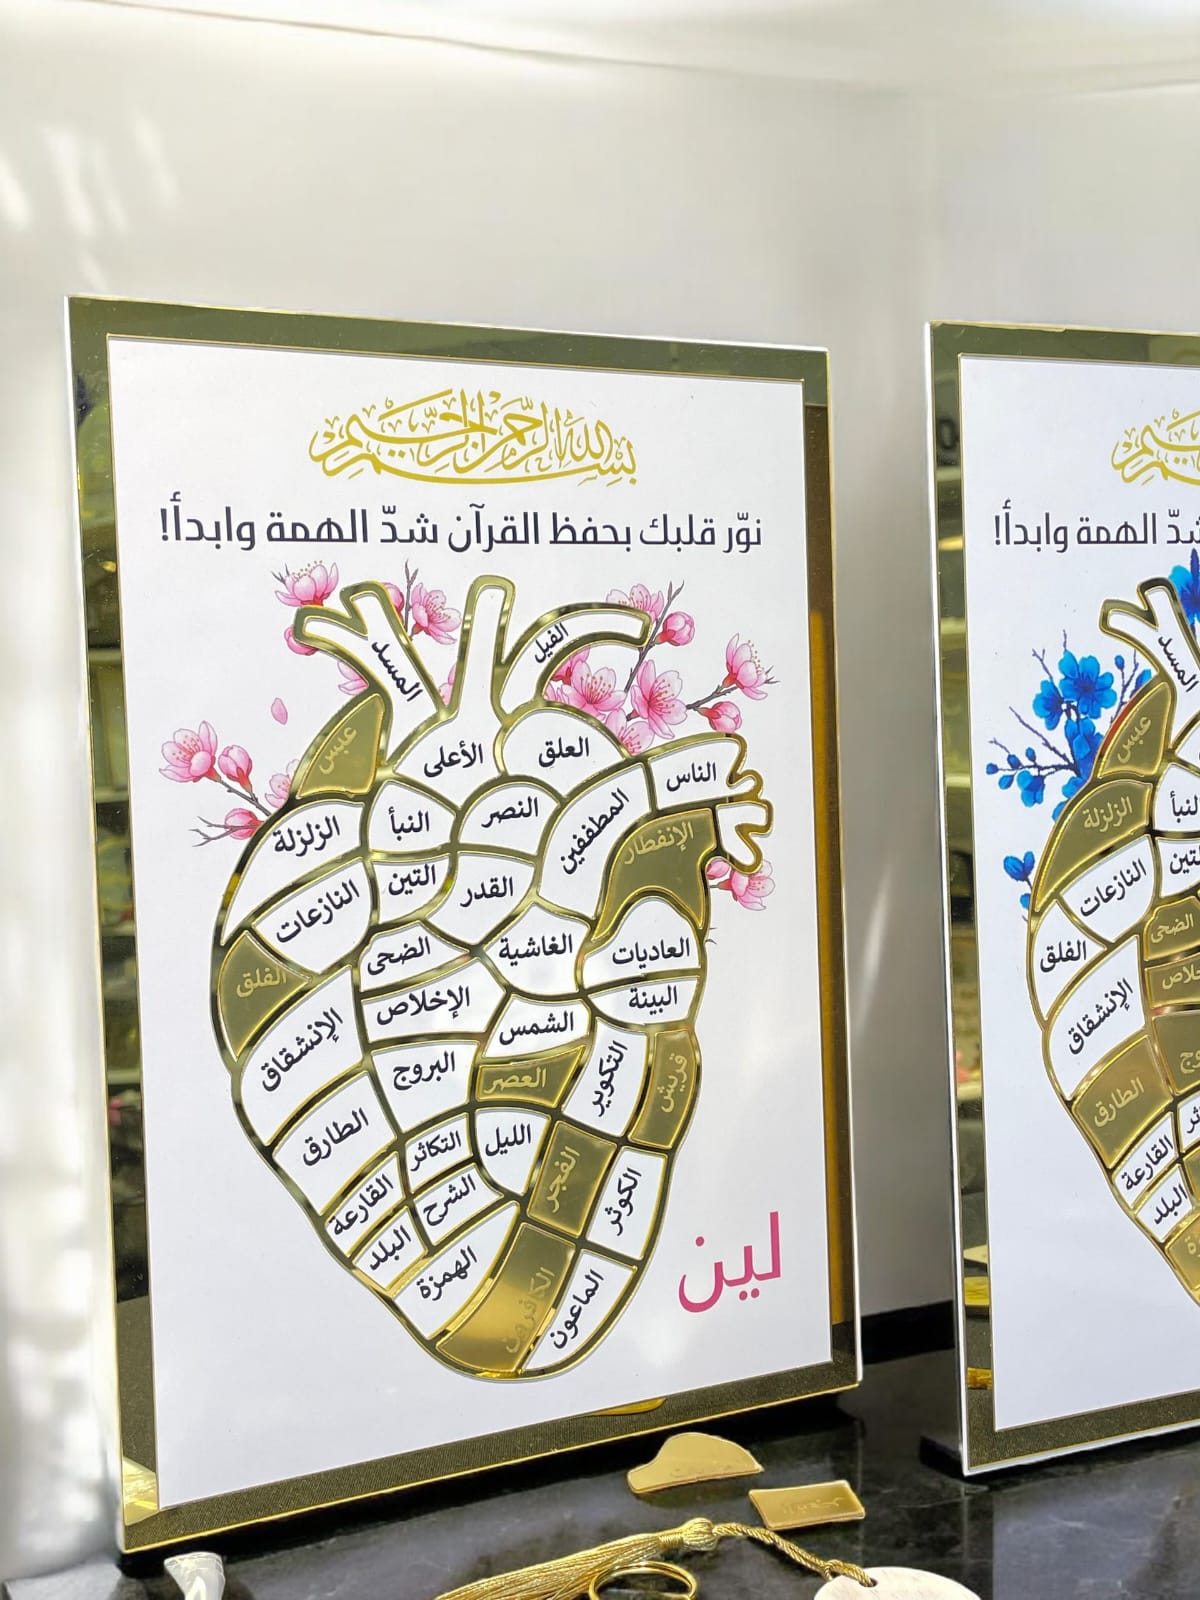 بسم الله الرحمن الرحيم
نوّر قلبك بحفظ القرآن شدّ الهمة وابدأ!
المسد
الفيل
عبس
الأعلى
العلق
الناس
الزلزلة
النبأ
النصر
المطففين
الإنفطار
النازعات
التين
القدر
الفلق
الضحى
الغاشية
العاديات
الإنشقاق
الإخلاص
الشمس
البينة
البروج
العصر
التكوير
قريش
الطارق
التكاثر
الليل
الفجر
الكوثر
القارعة
الشرح
البلد
الهمزة
الكافرون
الماعون
لين
شدّ الهمة وابدأ!
المسد
عبس
الزلزلة
النازعات
الضحى
الفلق
الإنشقاق
الطارق
القارعة
البلد